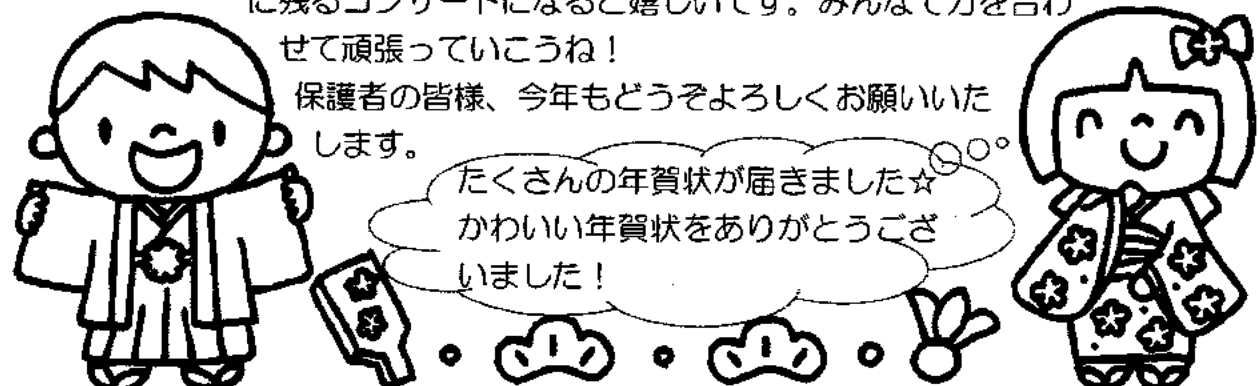 に残るコンサートになると嬉しいです。みんなで力を合わ
せて頑張っていこうね！
保護者の皆様、今年もどうぞよろしくお願いいた
します。
たくさんの年賀状が届きました☆
かわいい年賀状をありがとうござ
いました！